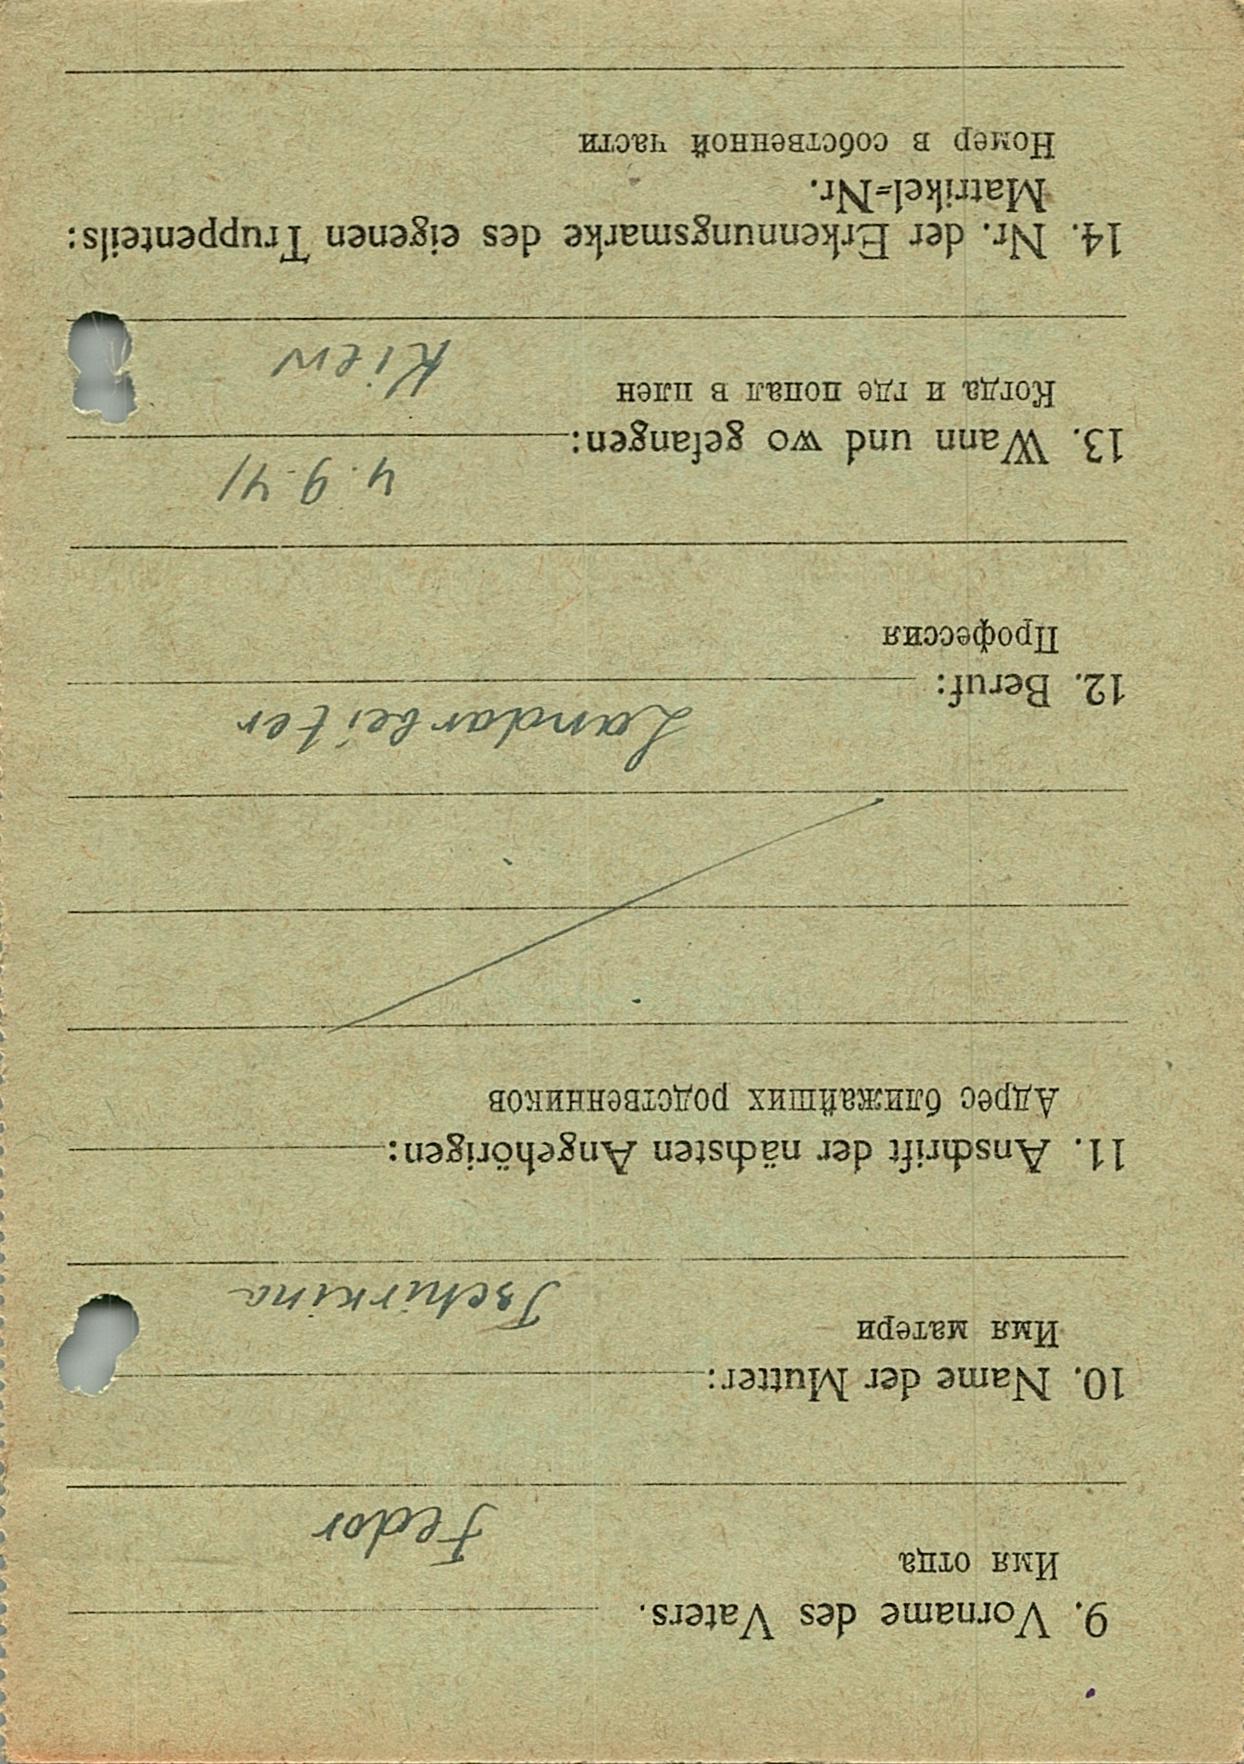 9. Vorname des Vaters.
Имя отца
Fedor
10. Name der Mutter:
Имя матери
Tschirkina
11. Anschrift der nächsten Angehörigen:
Адрес ближайших родственников
12. Beruf:
Профессия
Landarbeiter
13. Wann und wo gefangen:
4.9.41
Когда и где попал в плен
Kiew
14. Nr. der Erkennungsmarke des eigenen Truppenteils:
Matrikel=Nr.
Номер в собственной части